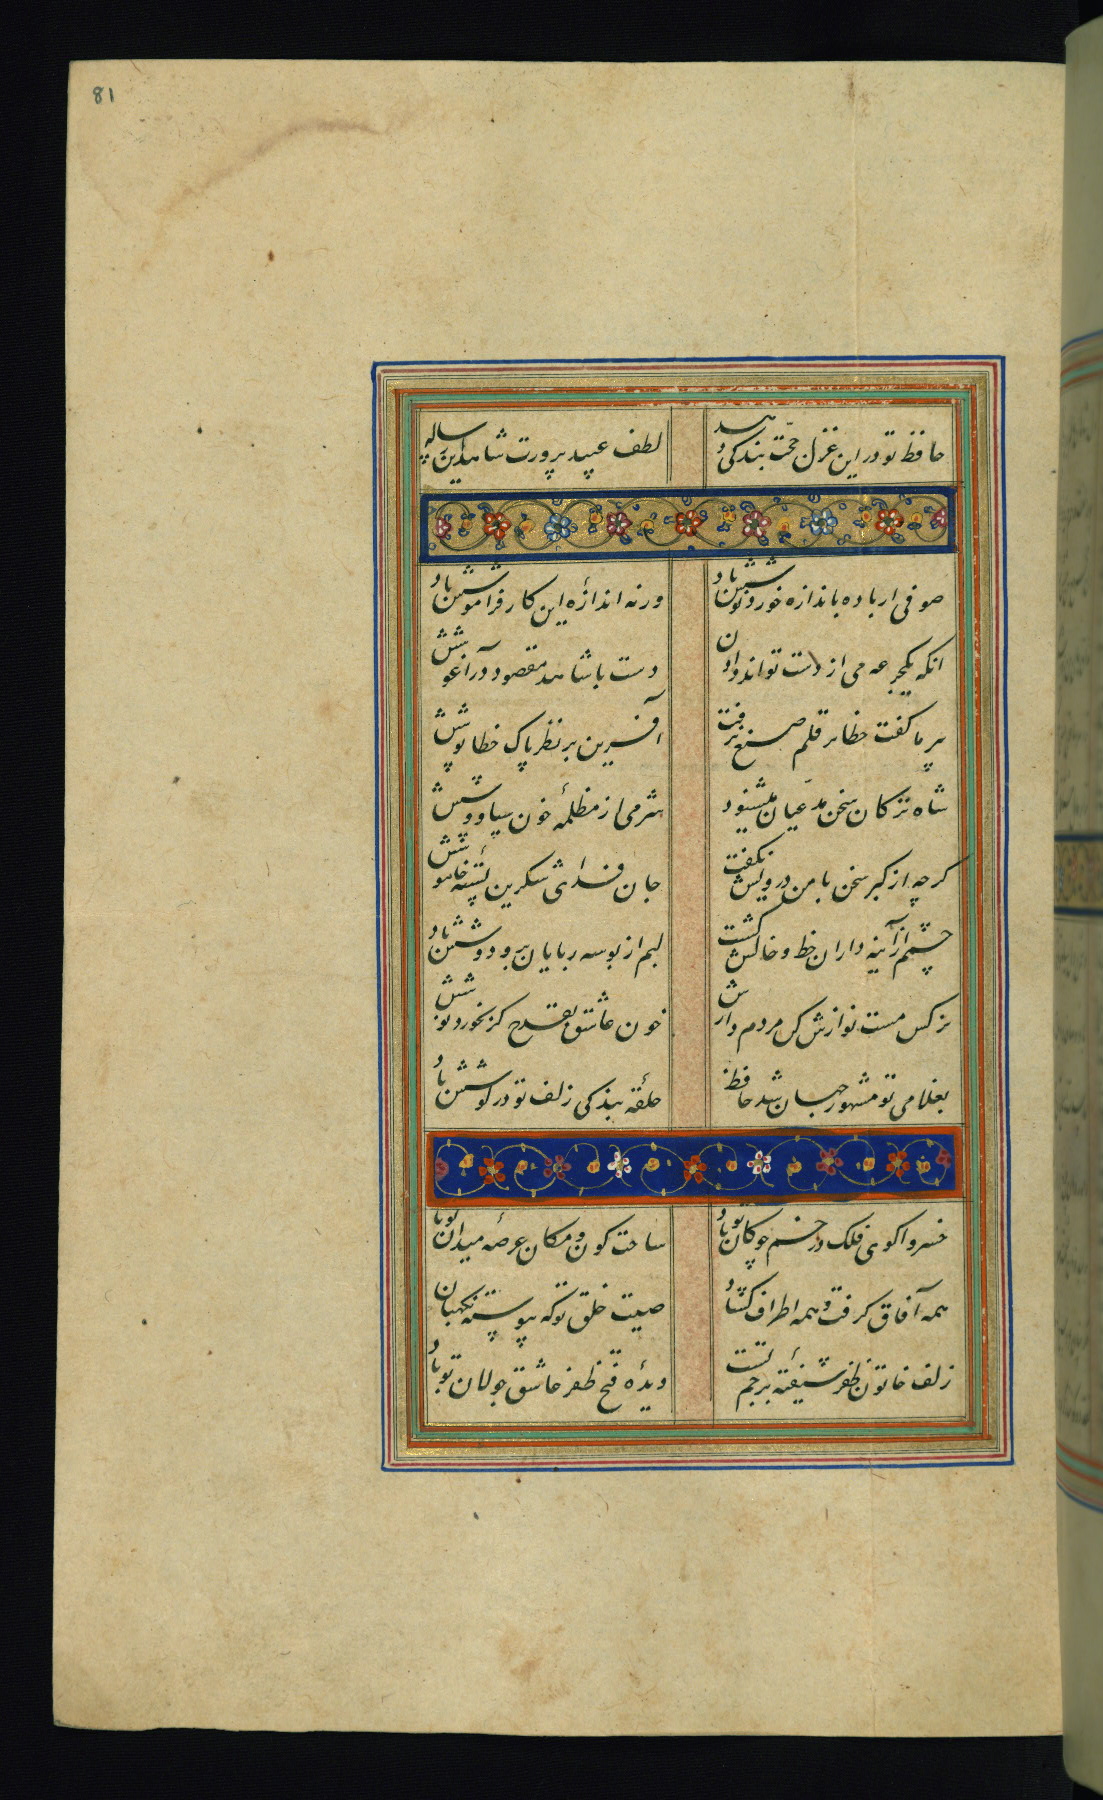 81
حافظ تو در این غزل حجّت بندگی دهد لطف عبید پرورت شاهد این رساله
صوفی ار باده باندازه خورد نوشش باد ورنه اندازهٔ این کار فراموشش باد
انکه یکجرعه می از دست تواند دادن دست با شاهد مقصود در آغوشش
پیر ما کفت خطا بر قلم صنع نرفت آفرین بر نظر پاک خطا پوشش
شاه ترکان سخن مدّعیان میشنود شرمی از مظلمهٔ خون سیاووشش
کرچه از کبر سخن با من درویش نکفت جان فدای شکرین پستهٔ خاموشش
چشمم از آینه داران خط و خالش کشت لبم از بوسه ربایان بر و دوشش باد
نرکس مست نوازش کن مردم دارش خون عاشق بقدح کر بخورد نوشش
بغلامی تو مشهور جهان شد حافظ حلقهٔ بندکی زلف تو در کوشش باد
خسروا کوی فلک در خم چوکان تو باد ساحت کون و مکان عرصهٔ میدان تو باد
همه آفاق کرفت و همه اطراف کشاد صیت خلق تو که پیوسته نکهبان
زلف خاتون ظفر شیفتهٔ پرچم تست دیدهٔ فتح ظفر عاشق جولان تو باد